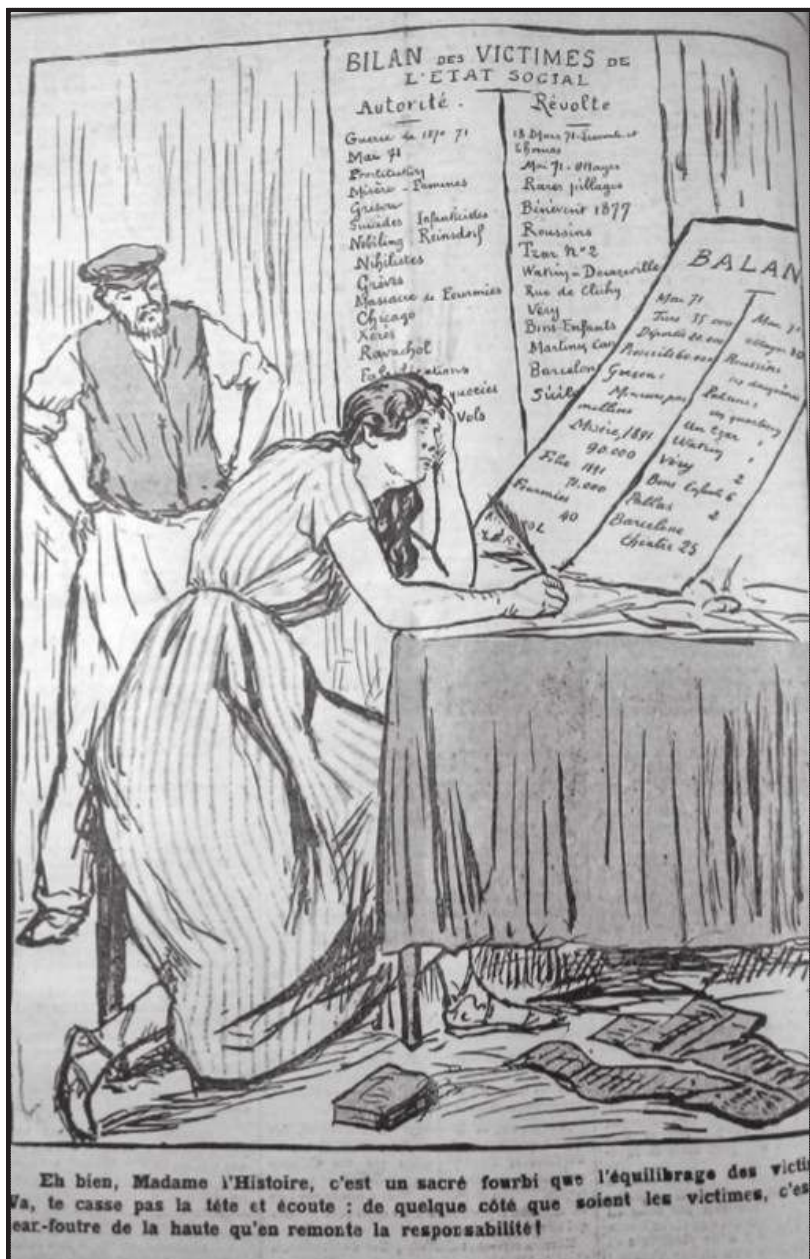 BILAN DES VICTIMES DE
L'ETAT SOCIAL
Autorité.
Guerre de 1870 71
Mai 71
Prostitution
Misère - Famines
Grisou
Suicides Infanticides
Nobiling Reinsdorf
Nihilistes
Grèves
Massacre de Fourmies
Chicago
Xérès
Ravachol
Vols
Révolte
18 Mars 71 - Lecomte et
Thomas
Mai 71 - Otages
Rares pillages
Bénévent 1877
Roussins
Tzar n° 2
Watrin - Decazeville
Rue de Clichy
Véry
Bons-Enfants
Barcelon
BALAN
Mai 71
Tués 35 000
Grisou :
Misère, 1891
90.000
1891
71.000
Fourmies
40
Mai 71
Roussins
Patrons :
un tzar
Watrin
Véry 2
Bons Enfants 6
Pallas 2
Barcelone
théâtre 25
Eh bien, Madame l'Histoire, c'est un sacré fourbi que l'équilibrage des victi
Va, te casse pas la tête et écoute : de quelque côté que soient les victimes, c'es
ean-foutre de la haute qu'en remonte la responsabilité !